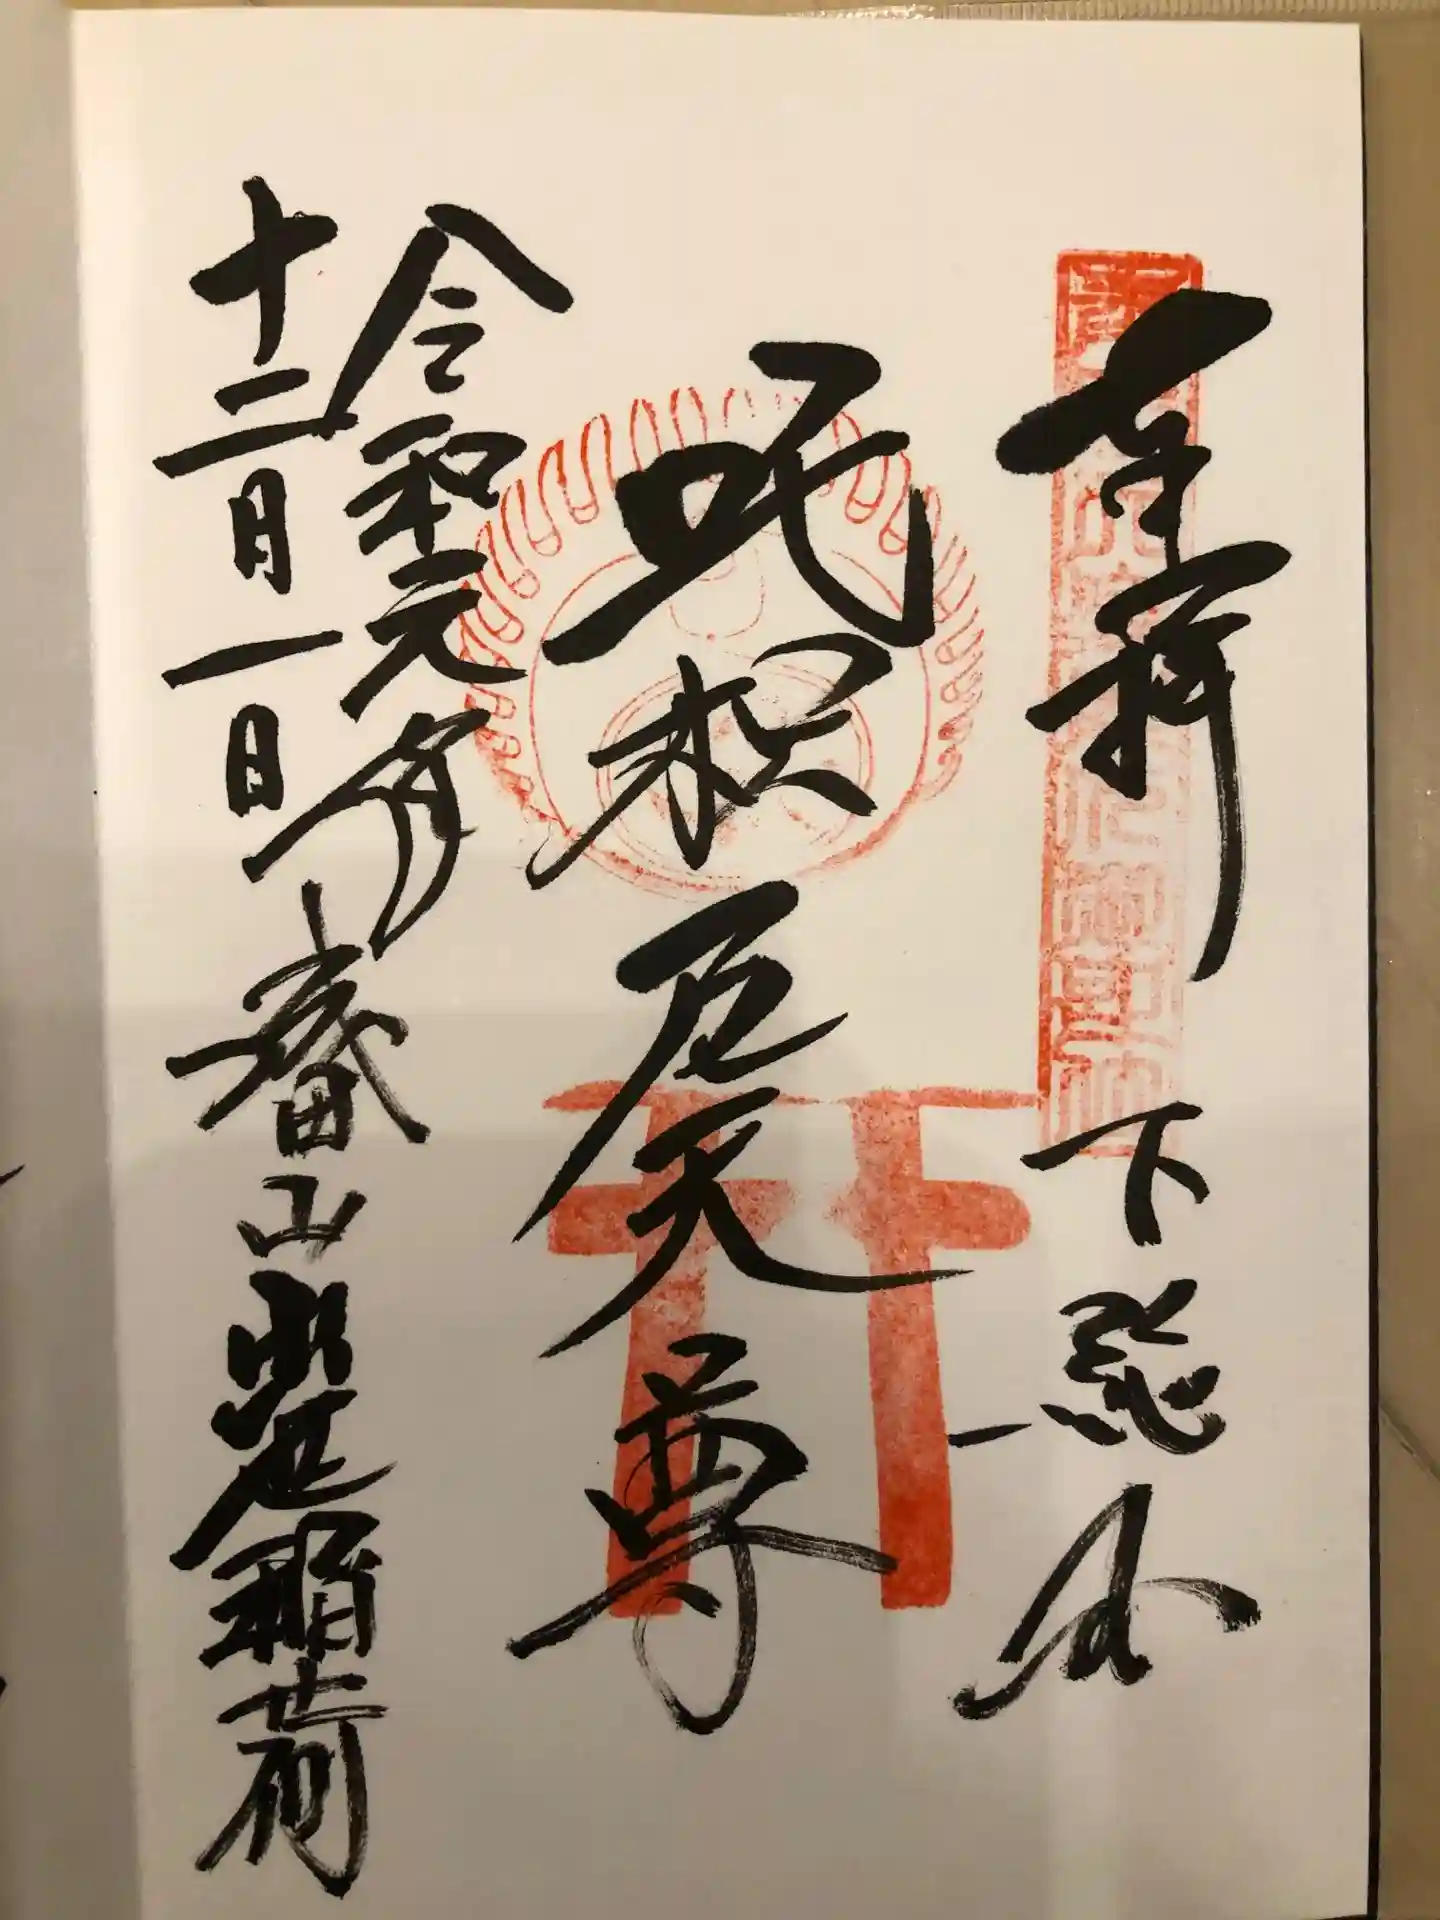 奉拝 下総
吒枳尼天尊
令和元年
十二月一日 成田山出世稲荷